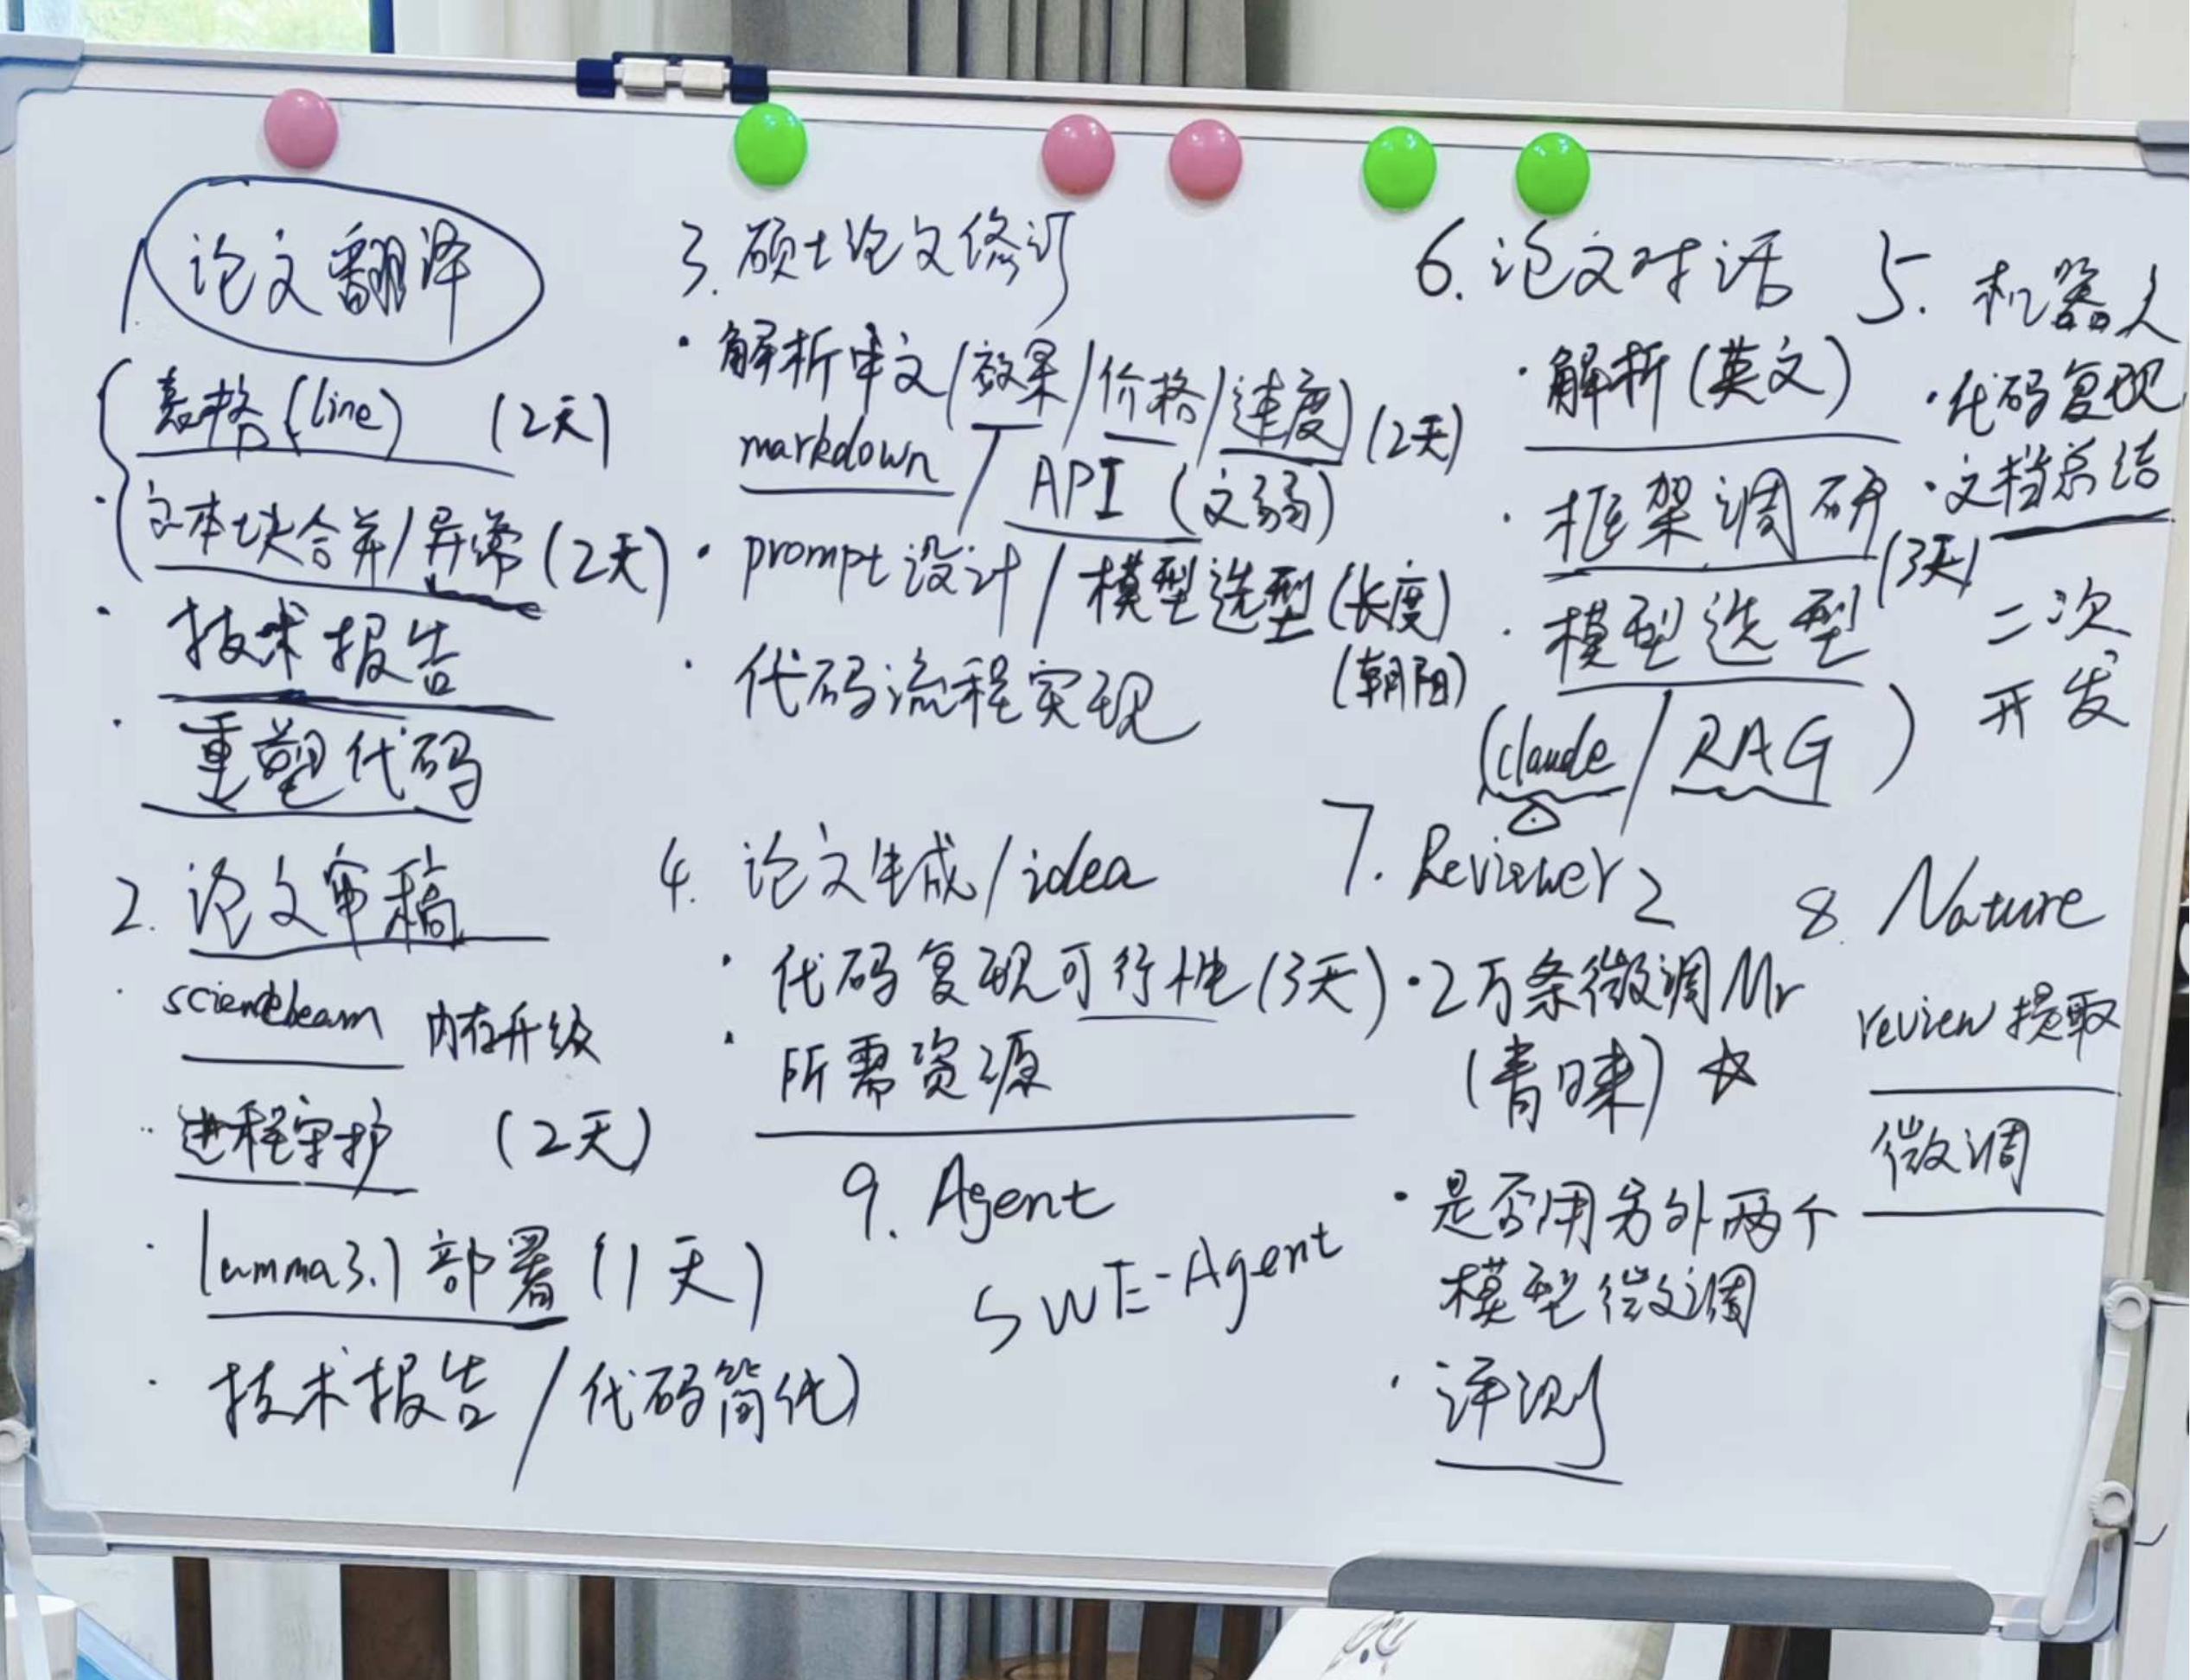 1 论文翻译
表格(line) (2天)
·文本块合并/异常(2天)
·技术报告
·重塑代码
2.论文审稿
·sciencebeam 内存升级
·进程守护 (2天)
·lamma3.1部署(1天)
·技术报告/代码简化
3.硕士论文修订
·解析中文/效果/价格/速度(2天)
markdown / API (文弱)
·prompt设计/模型选型(长度)
(朝阳)
·代码流程实现
4.论文生成/idea
·代码复现可行性(3天)
·所需资源
9.Agent
SWE-Agent
6.论文对话
·解析(英文)
·框架调研(3天)
·模型选型
(claude/RAG)
5.机器人
·代码复现
·文档总结
二次
开发
7.Reviewer2
·2万条微调Mr
(青)☆
·是否用另外两个
模型微调
·评测
8.Nature
review提取
微调